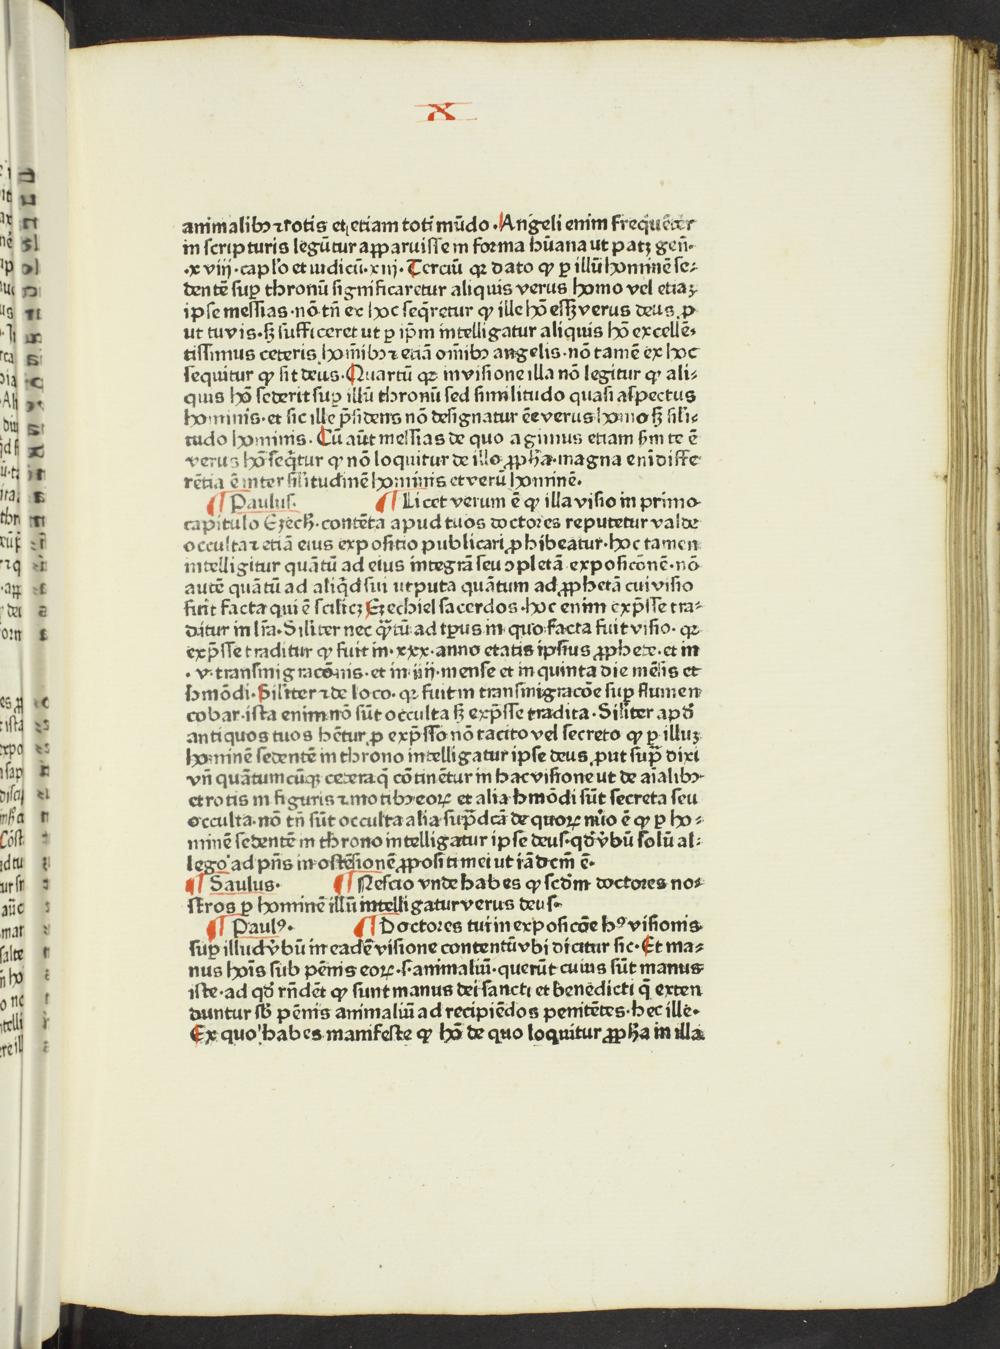 X
animalibꝫ ⁊ rotis et etiam toti mūdo · Angeli enim frequēter
in scripturis legūtur apparuisse in forma hūana ut patꝫ gen̄·
·xviij·caplo et iudicū·xiij· Terciū qꝛ dato ꝙ ꝑ illū hominē se⸗
dentē suꝑ thronū significaretur aliquis verus homo vel etiaꝫ
ipse messias·nō tn̄ ex hoc seq̄retur ꝙ ille hō essꝫ verus deus ꝓ
ut tu vis·sꝫ sufficeret ut ꝑ ip̄m intelligatur aliquis hō excellē⸗
tissimus ceteris hoīibꝫ ⁊ etiā oīnibꝫ angelis·nō tamē ex hoc
sequitur ꝙ sit deus·Quartū qꝛ in visione illa nō legitur ꝙ ali⸗
quis hō sederit suꝑ illū thronū sed similitudo quasi aspectus
hominis·et sic ille p̄sidens nō designatur ēe verus homo sꝫ sili⸗
tudo hominis·Cū aūt messias de quo agimus etiam sm̄ te ē
verus hō seq̄tur ꝙ nō loquitur de illo ꝓph̄a·magna enī diffe
rētia ē inter silitudinē hominis et verū hominē·
¶ Paulus. ¶ Licet verum ē ꝙ illa visio in primo
capitulo Ezech̄·contēta apud tuos doctores reputetur valde
occulta ⁊ etiā eius expositio publicari ꝓhibeatur·hoc tamen
intelligitur quātū ad eius integrā seu ꝯpletā exposicōnē·nō
autē quātū ad aliq̄d sui utputa quātum ad ꝓphetā cui visio
fuit facta qui ē scilicꝫ Ezechiel sacerdos·hoc enim exp̄sse tra⸗
ditur in lr̄a·Siliter nec q̄tū ad tp̄us in quo facta fuit visio·qꝛ
exp̄sse traditur ꝙ fuit in·xxx·anno etatis ipsius ꝓphete·et in
·v·transmigracōnis·et in iiij·mense et in quinta die mēsis et
hmōdi·Siliter ⁊ de loco·qꝛ fuit in transmigracōe suꝑ flumen
cobar·ista enim nō sūt occulta sꝫ exp̄sse tradita·Siliter apd̄
antiquos tuos hētur ꝓ exp̄sso nō tacito vel secreto ꝙ ꝑ illuꝫ
hominē sedentē in throno intelligatur ipse deus ꝓut sup̄ dixi
vn̄ quātumcūqꝫ cetera q̄ cōtinētur in hac visione ut de aīalibꝫ
et rotis in figuris ⁊ motibꝫ eoꝝ et alia hmōdi sūt secreta seu
occulta·nō tn̄ sūt occulta alia sup̄dc̄a de quoꝝ nūo ē ꝙ ꝑ ho⸗
minē sedentē in throno intelligatur ipse deus·qd̄ v̄bū solū al⸗
lego ad pn̄s in ostēsionē ꝓpositi mei ut iā dcm̄ ē·
¶ Saulus· ¶ Nescio vnde habes ꝙ scdm̄ doctores no⸗
stros ꝑ hominē illū intelligatur verus deus·
¶ Paulꝰ· ¶ Doctores tui in exposicōe hꝰ visionis
suꝑ illud v̄bū in eadē visione contentū vbi dicitur sic·Et ma⸗
nus hoīs sub pēnis eoꝝ·s·animaliū·querūt cuius sūt manus
iste·ad qd̄ rn̄dēt ꝙ sunt manus dei sancti et benedicti q̄ exten
duntur sb̄ pēnis animaliū ad recipiēdos penitētes·hec ille·
Ex quo habes manifeste ꝙ hō de quo loquitur ꝓph̄a in illa